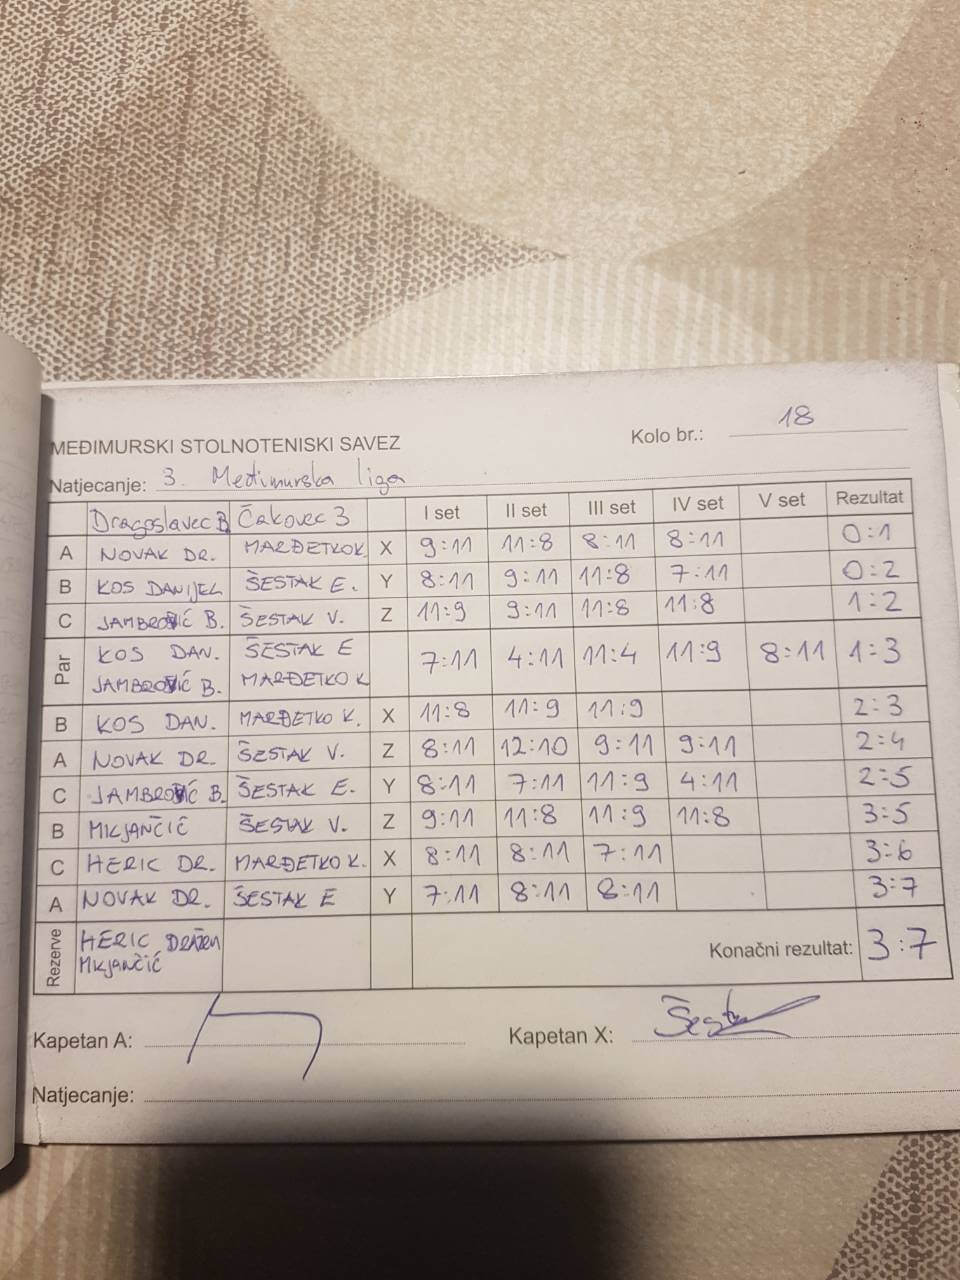 MEĐIMURSKI STOLNOTENISKI SAVEZ
Kolo br.: 18
Natjecanje: 3. Međimurska liga
Dragoslavec B Čakovec 3 I set II set III set IV set V set Rezultat
A NOVAK DR. MARĐETKO K X 9:11 11:8 8:11 8:11 0:1
B KOS DANIJEL ŠESTAK E. Y 8:11 9:11 11:8 7:11 0:2
C JAMBROŠIĆ B. ŠESTAK V. Z 11:9 9:11 11:8 11:8 1:2
Par KOS DAN. ŠESTAK E 7:11 4:11 11:4 11:9 8:11 1:3
JAMBROŠIĆ B. MARĐETKO K
B KOS DAN. MARĐETKO K. X 11:8 11:9 11:9 2:3
A NOVAK DR. ŠESTAK V. Z 8:11 12:10 9:11 9:11 2:4
C JAMBROŠIĆ B. ŠESTAK E. Y 8:11 7:11 11:9 4:11 2:5
B MKJANČIĆ ŠESTAK V. Z 9:11 11:8 11:9 11:8 3:5
C HERIC DR. MARĐETKO K. X 8:11 8:11 7:11 3:6
A NOVAK DR. ŠESTAK E Y 7:11 8:11 8:11 3:7
Rezerve HERIC DRAŽEN Konačni rezultat: 3:7
MKJANČIĆ
Kapetan A: Kapetan X:
Natjecanje: